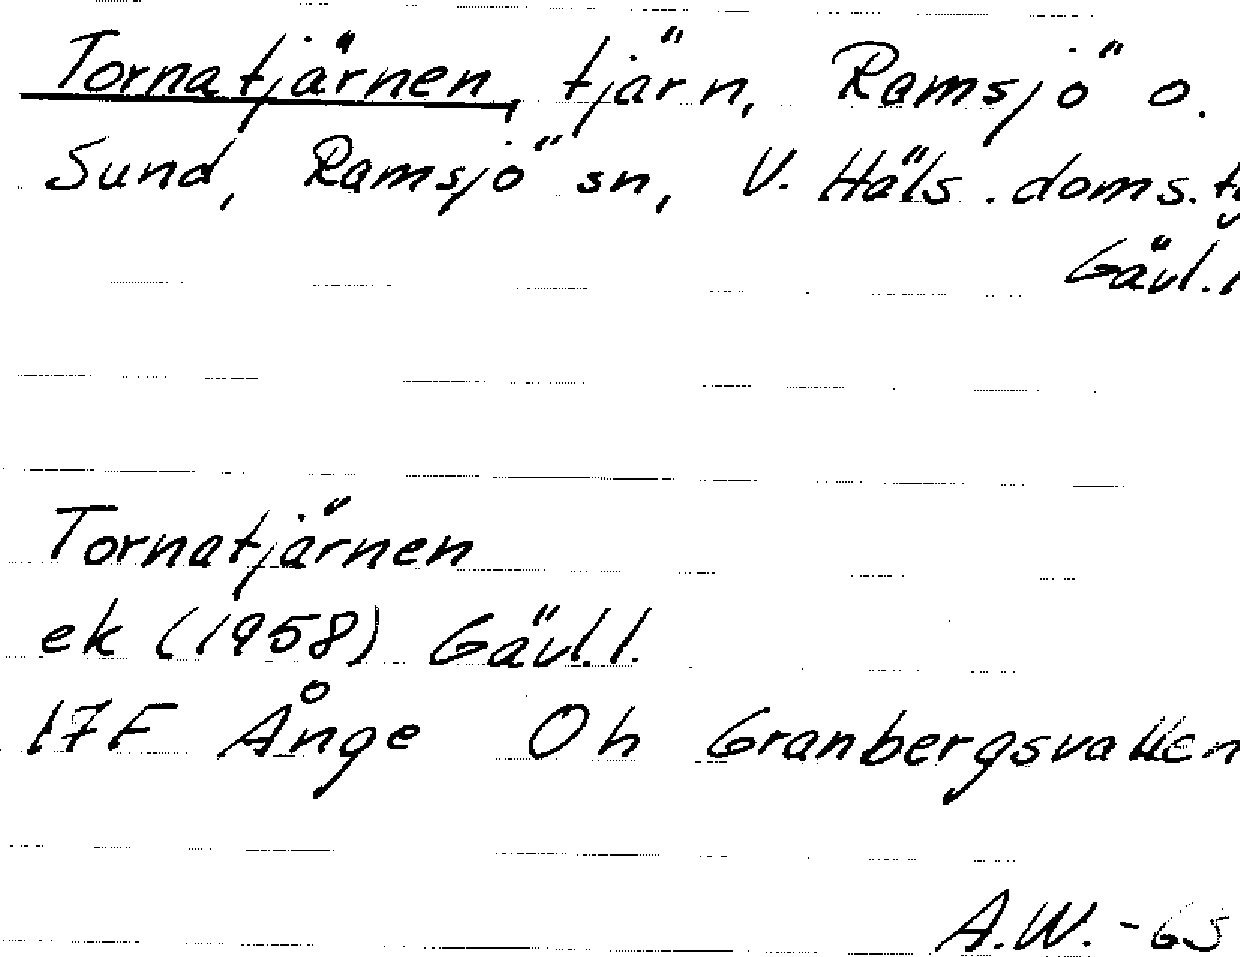 Tornatjärnen, tjärn, Ramsjö o.
Sund, Ramsjö sn, V. Häls. doms.
Gävl.
Tornatjärnen
ek (1958) Gävl.l.
17F Ånge Oh Granbergsvallen
A.W. -65